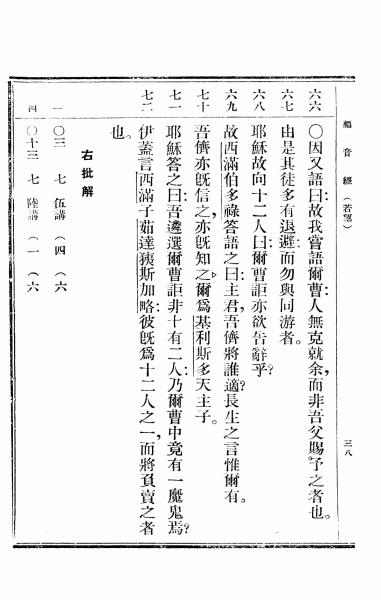 福音經（若望）　三八
六六　〇因又語曰：故我嘗語爾曹：人無克就余，而非吾父賜予之者也。
六七　由是其徒多有退避，而勿與同游者。
六八　耶穌故向十二人曰：爾曹詎亦欲告辭乎？
六九　故西滿伯多祿答語之曰：主君，吾儕將誰適？長生之言惟爾有。
七十　吾儕亦旣信之，亦旣知之，爾爲基利斯多天主子。
七一　耶穌答之曰：吾遴選爾曹詎非十有二人？乃爾曹中竟有一魔鬼焉？
七二　伊蓋言西滿子茹達狹斯加略：彼旣爲十二人之一，而將負賣之者
也。
右批解
一　〇三　七　伍講（四）（六
四　〇十三　七　陸講（一）（六